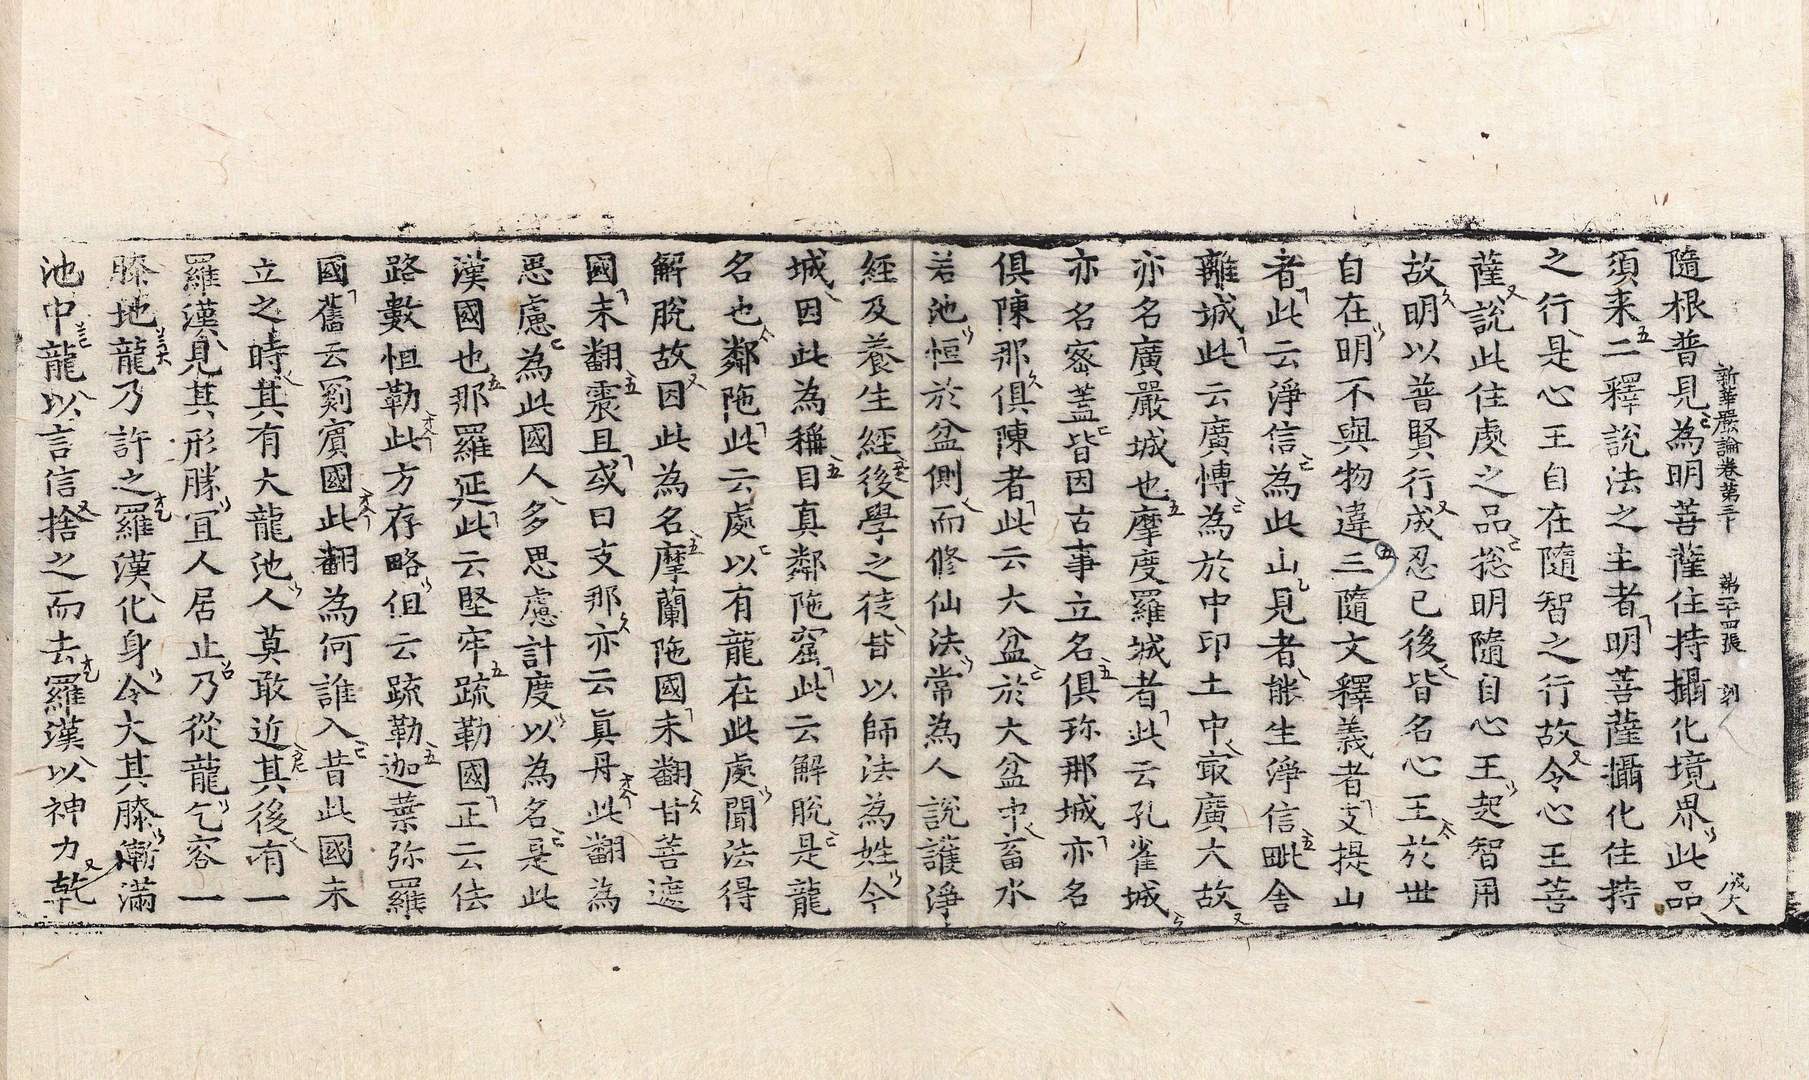 新華嚴論卷第三十 第二十四張 刻 成大
隨根普見為明菩薩住持攝化境界此品
須来二釋說法之主者明菩薩攝化住持
之行是心王自在隨智之行故令心王菩
薩說此住處之品捴明隨自心王起智用
故明以普賢行成忍已後皆名心王於世
自在明不與物違三隨文釋義者支提山
者此云淨信為此山見者能生淨信毗舍
離城此云廣愽為於中印土中㝡廣大故
亦名廣嚴城也摩度羅城者此云孔雀城
亦名宻蓋皆因古事立名俱珎那城亦名
俱陳那俱陳者此云大盆於大盆中畜水
若池恒於盆側而修仙法常為人說護淨
經及養生經後學之徒皆以師法為姓今
城因此為稱目真鄰陁窟此云解脫是龍
名也鄰陁此云處以有龍在此處聞法得
解脫故因此為名摩蘭陁國未翻甘菩遮
國未翻震旦或曰支那亦云真丹此翻為
思慮為此國人多思慮計度以為名是此
漢國也那羅延此云堅牢疏勒國正云佉
路數怛勒此方存略但云疏勒迦葉弥羅
國舊云罽賓國此翻為何誰入昔此國未
立之時其有大龍池人莫敢近其後有一
羅漢見其形勝冝人居止乃從龍乞容一
膝地龍乃許之羅漢化身令大其膝漸滿
池中龍以言信捨之而去羅漢以神力乾